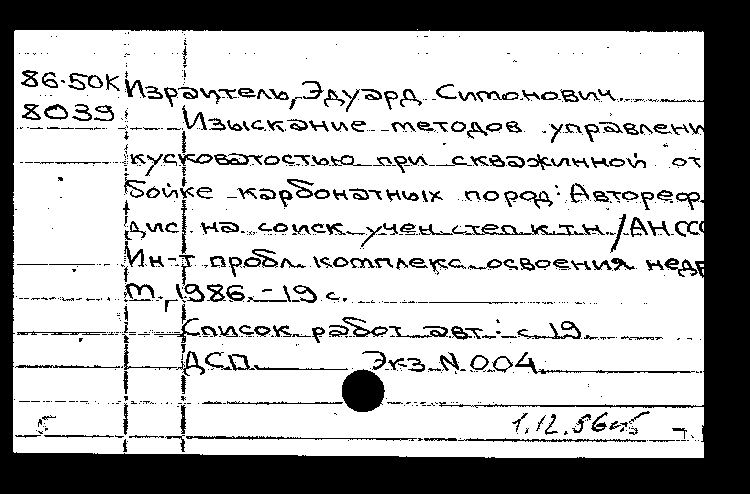 86-50К Израитель, Эдуард Симонович
8039 Изыскание методов управлени
кусковатостью при скважинной от
бойке карбонатных пород: Автореф.
дис на соиск учен степ к.т.н. /АН ССС
Ин-т пробл. комплекс. освоения недр
М., 1986. - 19 с.
Список работ авт.: с 19.
ДСП. Экз N 004.
Б 1.12.86